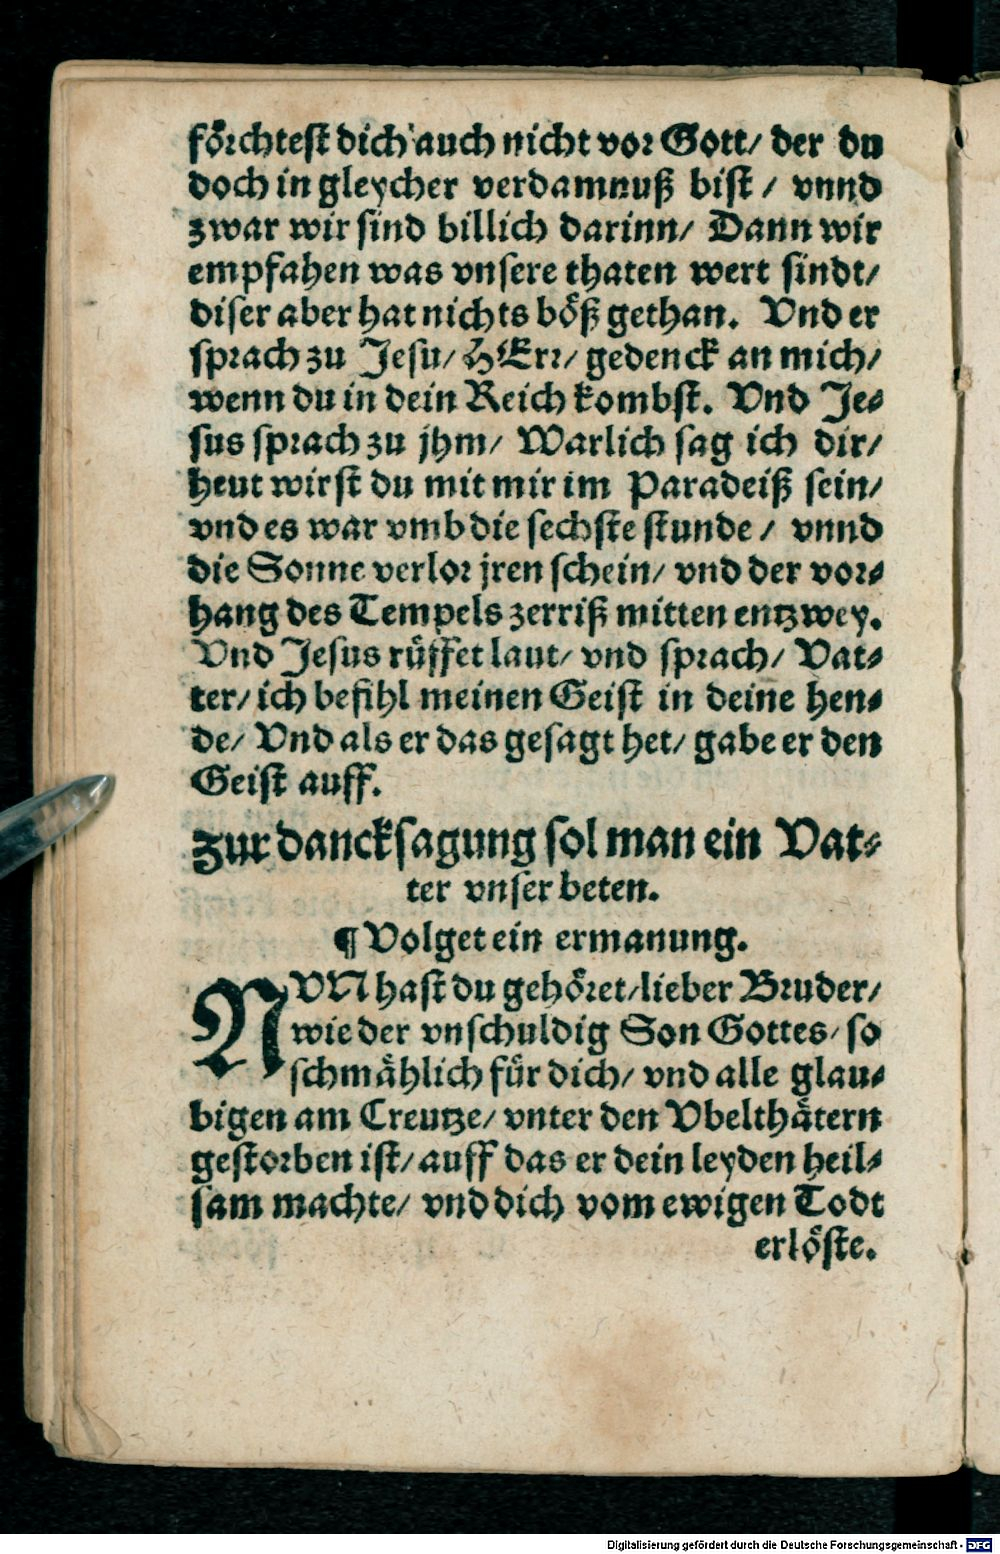 förchtest dich auch nicht vor Gott/ der du
doch in gleycher verdamnuß bist / vnnd
zwar wir sind billich darinn/ Dann wir
empfahen was vnsere thaten wert sindt/
diser aber hat nichts böß gethan. Vnd er
sprach zu Jesu/ HErr/ gedenck an mich/
wenn du in dein Reich kombst. Vnd Je-
sus sprach zu jhm/ Warlich sag ich dir/
heut wirst du mit mir im Paradeiß sein/
vnd es war vmb die sechste stunde / vnnd
die Sonne verlor jren schein/ vnd der vor-
hang des Tempels zerriß mitten entzwey.
Vnd Jesus rüffet laut/ vnd sprach/ Vat-
ter/ ich befihl meinen Geist in deine hen-
de/ Vnd als er das gesagt het/ gabe er den
Geist auff.
Zur dancksagung sol man ein Vat-
ter vnser beten.
¶ Volget ein ermanung.
NVN hast du gehöret/ lieber Bruder/
wie der vnschuldig Son Gottes/ so
schmählich für dich/ vnd alle glau-
bigen am Creutze/ vnter den Vbelthätern
gestorben ist/ auff das er dein leyden heil-
sam machte/ vnd dich vom ewigen Todt
erlöste.
Digitalisierung gefördert durch die Deutsche Forschungsgemeinschaft - DFG